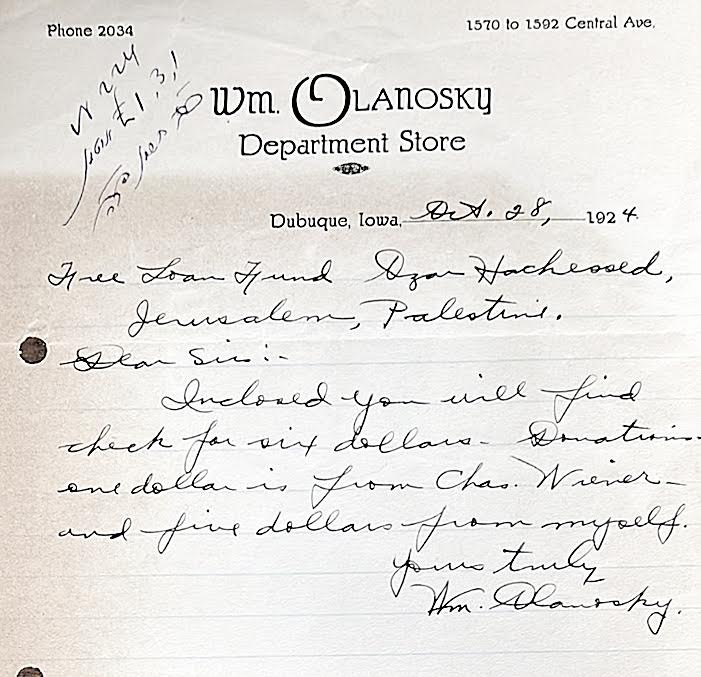 Phone 2034
1570 to 1592 Central Ave.
£1,3,1
Wm. Olanosky
Department Store
Dubuque, Iowa, Oct. 28, 1924.
Free Loan Fund Ozar Hachessed,
Jerusalem, Palestine.
Dear Sir:-
Inclosed you will find
check for six dollars - Donations -
one dollar is from Chas. Wiener -
and five dollars from myself.
Yours truly
Wm. Olanosky.